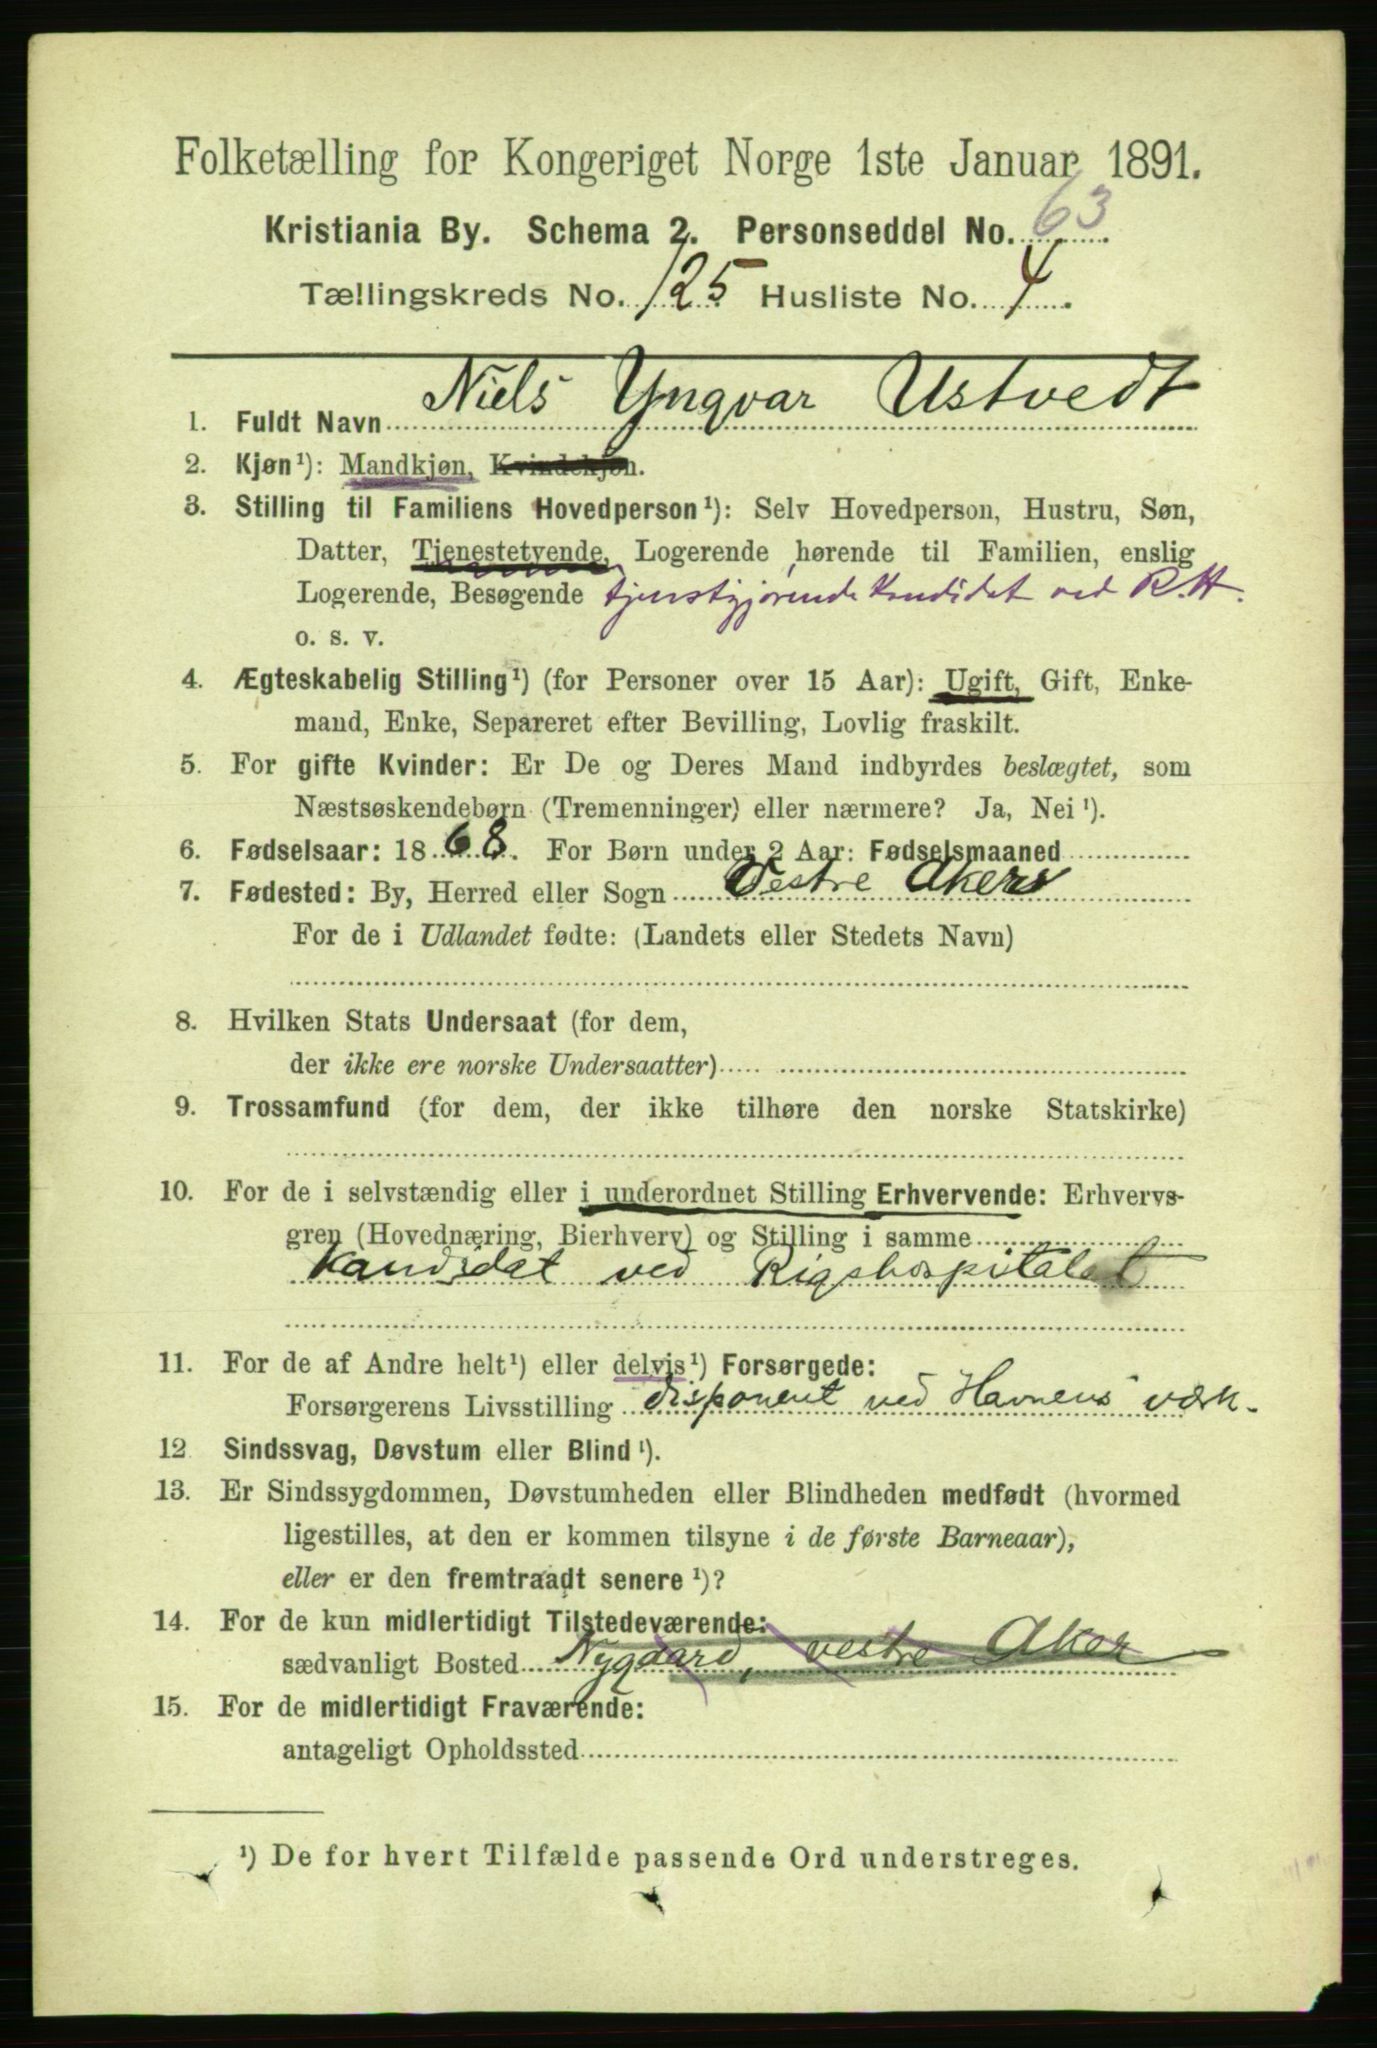 Folketælling for Kongeriget Norge 1ste Januar 1891.
Kristiania By. Schema 2. Personseddel No. 63
Tællingskreds No. 125 Husliste No. 4.
1. Fuldt Navn Niels Yngvar Ustvedt
2. Kjøn¹): Mandkjøn, Kvindekjøn.
3. Stilling til Familiens Hovedperson¹): Selv Hovedperson, Hustru, Søn,
Datter, Tjenestetyende, Logerende hørende til Familien, enslig
Logerende, Besøgende tjenstgjørende Kandidat ved R.H.
o. s. v.
4. Ægteskabelig Stilling¹) (for Personer over 15 Aar): Ugift, Gift, Enke-
mand, Enke, Separeret efter Bevilling, Lovlig fraskilt.
5. For gifte Kvinder: Er De og Deres Mand indbyrdes beslægtet, som
Næstsøskendebørn (Tremenninger) eller nærmere? Ja, Nei¹).
6. Fødselsaar: 1868. For Børn under 2 Aar: Fødselsmaaned
7. Fødested: By, Herred eller Sogn Vestre Aker
For de i Udlandet fødte: (Landets eller Stedets Navn)
8. Hvilken Stats Undersaat (for dem,
der ikke ere norske Undersaatter)
9. Trossamfund (for dem, der ikke tilhøre den norske Statskirke)
10. For de i selvstændig eller i underordnet Stilling Erhvervende: Erhvervs-
gren (Hovednæring, Bierhverv) og Stilling i samme
Kandidat ved Rigshospitalet
11. For de af Andre helt¹) eller delvis¹) Forsørgede:
Forsørgerens Livsstilling disponent ved Havnens værk.
12 Sindssvag, Døvstum eller Blind¹).
13. Er Sindssygdommen, Døvstumheden eller Blindheden medfødt (hvormed
ligestilles, at den er kommen tilsyne i de første Barneaar),
eller er den fremtraadt senere¹)?
14. For de kun midlertidigt Tilstedeværende:
sædvanligt Bosted Nygaard, vestre Aker
15. For de midlertidigt Fraværende:
antageligt Opholdssted
¹) De for hvert Tilfælde passende Ord understreges.